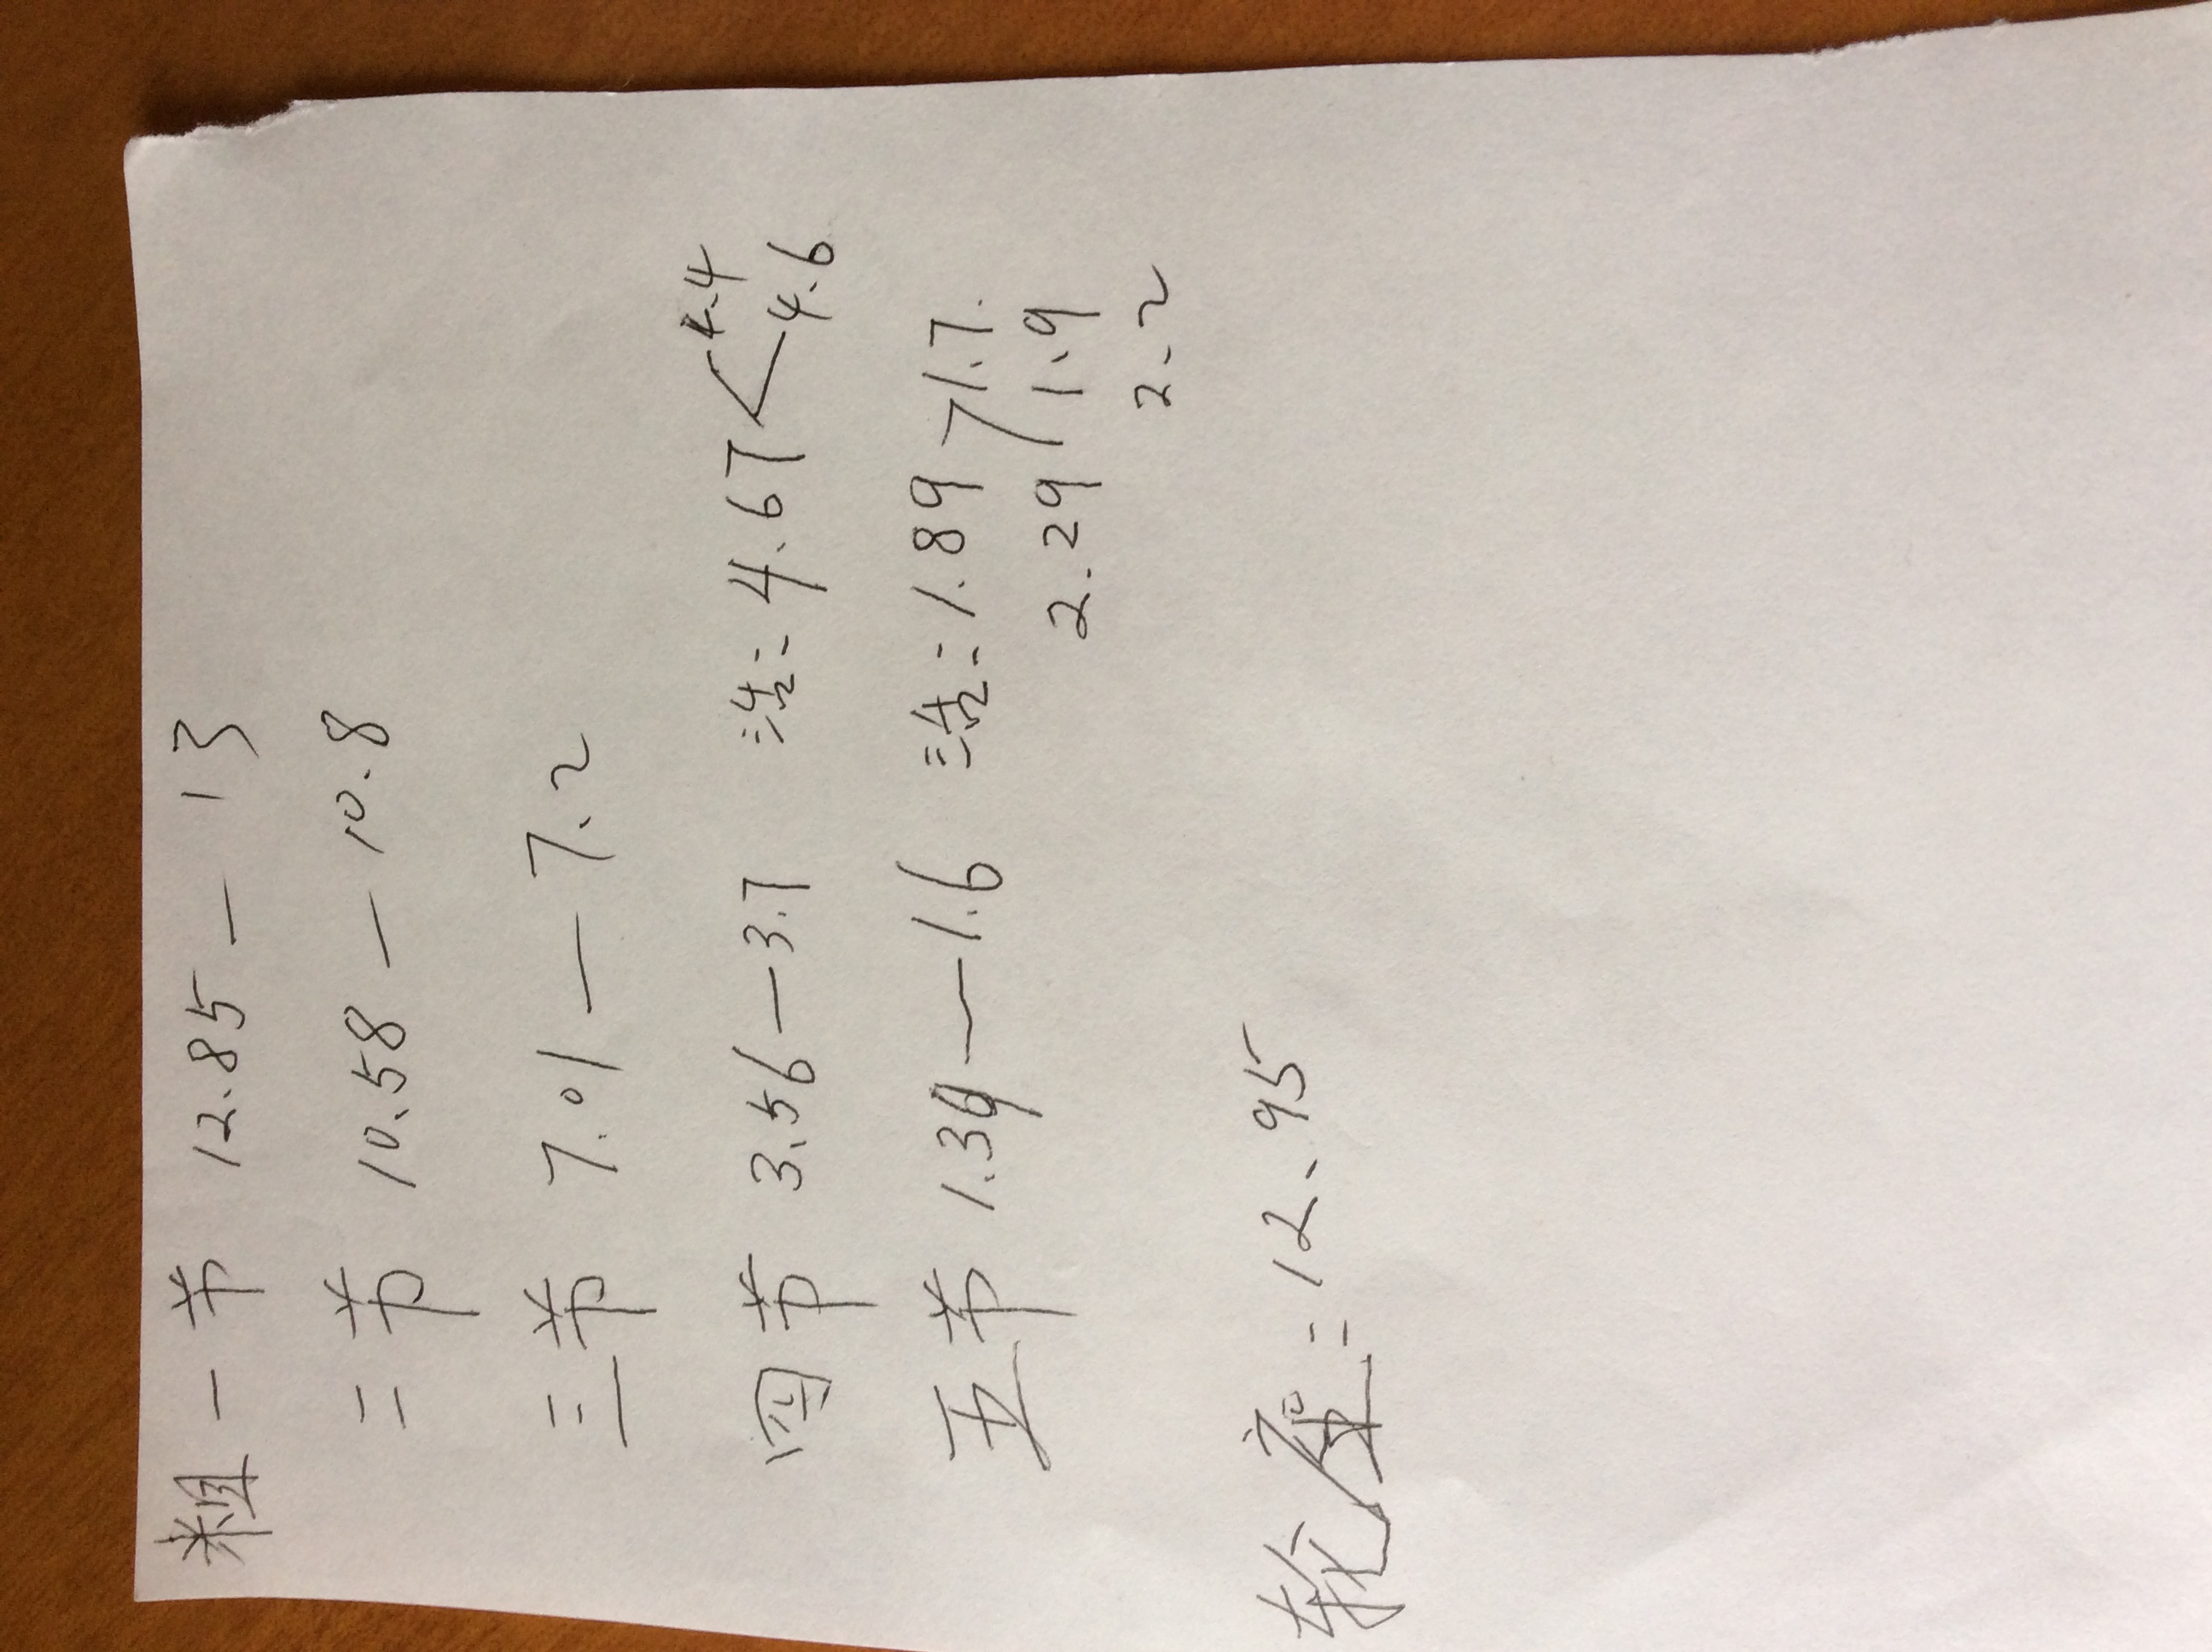 粗一节 12.85 — 13
二节 10.58 — 10.8
三节 7.01 — 7.2
四节 3.56 — 3.7 法= 4.67 < 4.4
4.6
五节 1.39 — 1.6 法= 1.89 > 1.7.
2.29 1.9
2.2
= 12.95